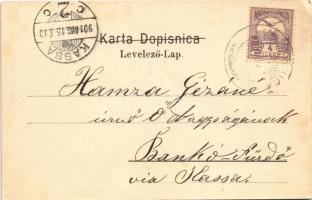 Karta Dopisnica
Levelező-Lap.
KASSA
901 AUG. 15. E. 10
C 2 C
Hamza Gézáné
úrnő Ő Nagyságának
Bankó-Fürdő
via Kassa.